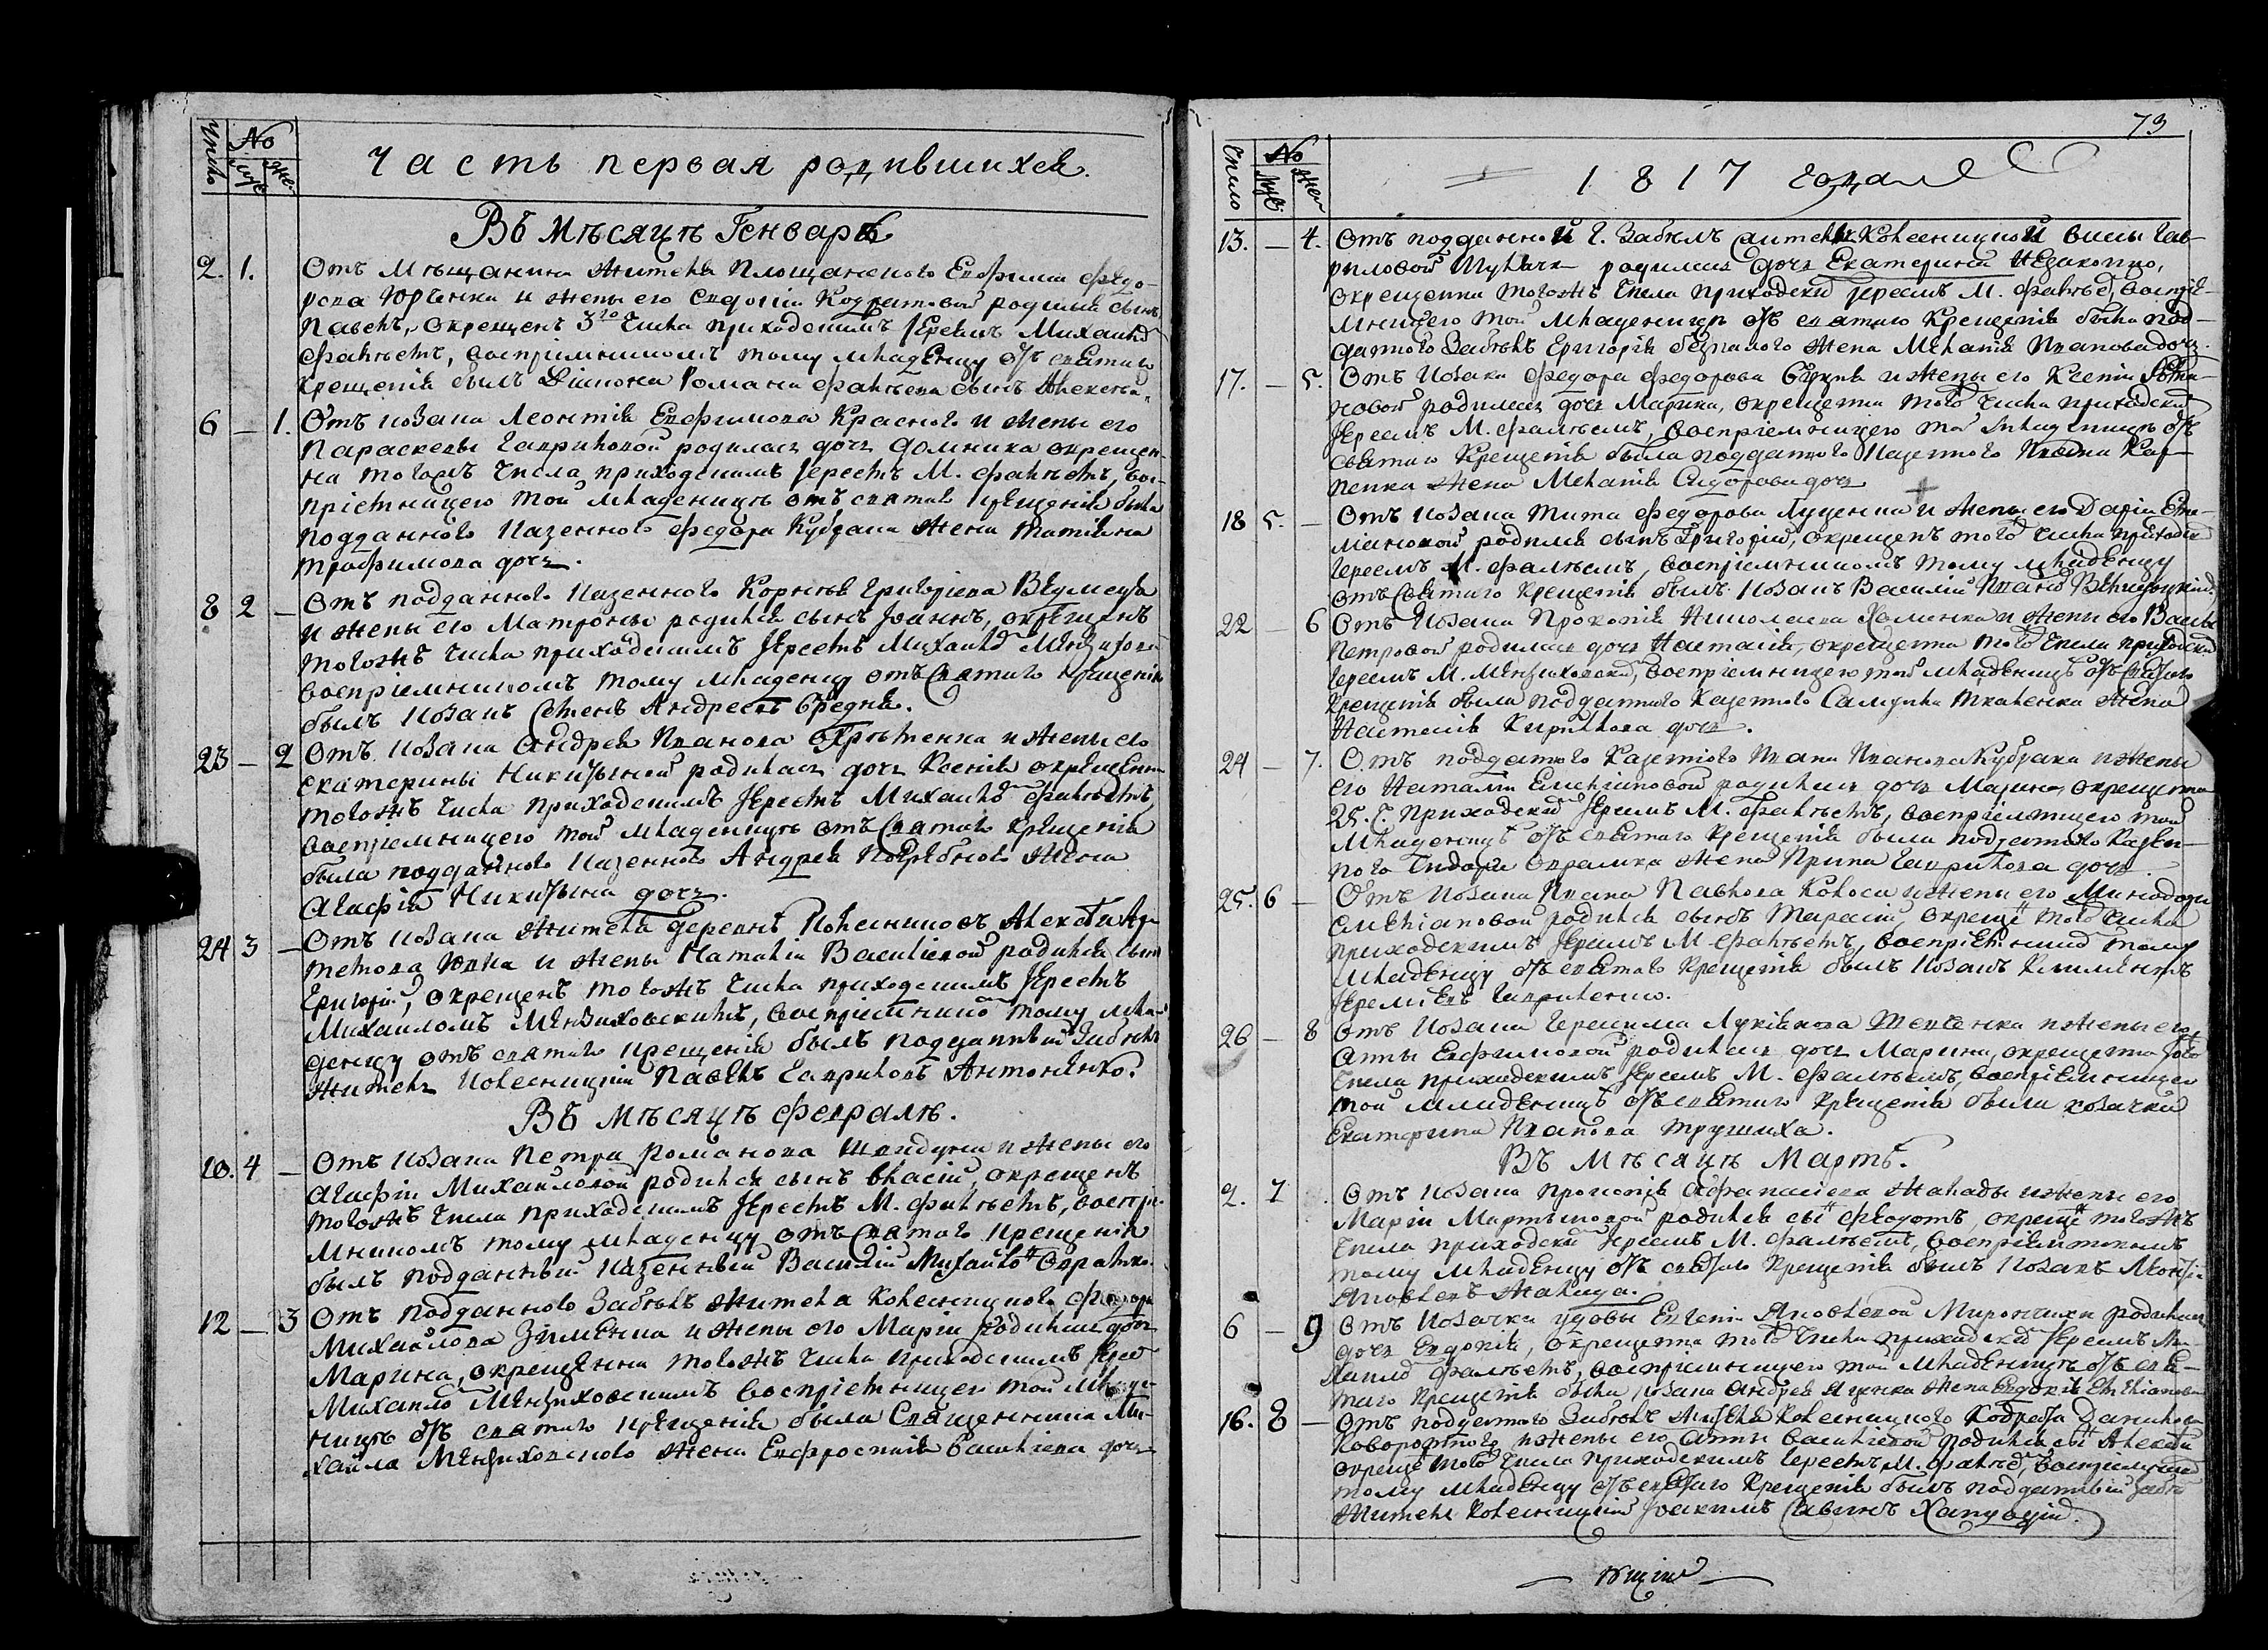 Число
No
муж
же
Часть первая родившихся.
Въ Мѣсяцѣ Генварѣ
2. 1. Отъ Мѣщанина жителя Площанского Евфимія Федо-
рова Юрченка и жены его Евдокіи Кодратовой родился сынъ
Павелъ, окрещенъ 3го числа приходскимъ Іереемъ Михаиломъ
Фалѣемъ, воспріемникомъ тому младенцу отъ святаго
крещенія былъ Діякона Романа Фалѣева сынъ Алексѣй.
6 — 1. Отъ козака Леонтія Евфимова Красного и жены его
Параскевы Гавриловой родилась дочь Домникія окрещен-
на тогожъ числа приходскимъ Іереемъ М. Фалѣемъ, вос-
пріемницею той младеницѣ отъ святаго крещенія была
подданного казенного Федора Кубрака жена Татіяна
Трофимова дочь.
8 2 — Отъ подданного казенного Корнѣя Григоріева Ведмедя
и жены его Матроны родился сынъ Іоаннъ, окрещенъ
тогожъ числа приходскимъ Іереемъ Михаиломъ Мензиховс.
воспріемникомъ тому младенцу отъ Святаго крещенія
былъ козакъ Семенъ Андреевъ Бредня.
23 — 2 Отъ козака Андрея Иванова Охрѣменка и жены его
Екатерины Никитиной родилась дочь Ксенія окрещенна
тогожъ числа приходскимъ Іереемъ Михаиломъ Фалѣемъ,
воспріемницею той младеницѣ отъ Святаго крещенія
была подданного казенного Андрея Погребного жена
Агафія Никитина дочь.
24 3 — Отъ козака жителя деревнѣ Колесниковъ Алексѣя Ар-
темова Юрка и жены Наталіи Василіевой родился сынъ
Григорій, окрещенъ тогожъ числа приходскимъ Іереемъ
Михаиломъ Мензиховскимъ, воспріемникомъ тому мла-
денцу отъ святаго крещенія былъ подданный Забѣлъ
житель Колесницкій Павелъ Гавриловъ Антоненко.
Въ Мѣсяцѣ Февралѣ.
10. 4 — Отъ козака Петра Романова и жены его
Агафіи Михайловой родился сынъ Власій, окрещенъ
тогожъ числа приходскимъ Іереемъ М. Фалѣемъ, воспріе-
мникомъ тому младенцу отъ Святаго крещенія
былъ подданный казенный Василій Михайловъ
12 — 3 Отъ подданного Забѣлъ жителя Колесницкого Федора
Михайлова Зименка и жены его Маріи родилась дочь
Марина, окрещенна тогожъ числа приходскимъ Іерее
Михаиломъ Мензиховскимъ воспріемницею той младе-
ницѣ отъ святаго крещенія была Священника Ми-
хаила Мензиховского жена Евфросинія Василіева дочь
73
Число
No
муж
жен
1817 года
13. — 4. Отъ подданной Г. Забѣлъ жителки Колесницкой Гав-
риловой родилась дочь Екатерина Незаконно,
окрещенна тогожъ числа приходски Іереемъ М. Фалѣе, воспріе-
мницею той младеницѣ отъ святаго крещенія была под-
данного Забѣлъ Григорія жена Меланія Иванова дочь.
17. — 5. Отъ козака Федора Федорова и жены его Ксеніи
родилась дочь Марина, окрещенна того числа приходски
Іереемъ М. Фалѣемъ, воспріемницею той младеницѣ отъ
святаго крещенія была подданного казенного Ивана Кар-
пенка жена Меланія Сидорова дочь
18 5. — Отъ козака Тита Федорова Луценка и жены его Даріи Еми-
ліановой родился сынъ Григорій, окрещенъ того числа приходск
Іереемъ М. Фалѣемъ, воспріемникомъ тому младенцу
отъ Святаго крещенія былъ козакъ Василій Иванов
22 — 6 Отъ козака Прокопія Николаева Хоменка и жены его
Петровой родилась дочь Наталія, окрещенна того числа приходск
Іереемъ М. Мензиховски, воспріемницею той младеницѣ отъ Святаго
крещенія была подданного казенного Самуила Ткаченка жена
Наталія Кирилова дочь.
24 — 7. Отъ подданного казенного Ивана Иванова Кубрака и жены
его Наталіи Емиліановой родилась дочь Марина, окрещенна
25. г. приходски Іереемъ М. Фалѣемъ, воспріемницею той
младеницѣ отъ святаго крещенія была подданного казен-
ного жена Ирина Гаврилова дочь.
25. 6 — Отъ козака Ивана Павлова Колоса и жены его Минодоры
Емиліановой родился сынъ Тарасій, окреще того числа
приходскимъ Іереемъ М. Фалѣемъ, воспріемник тому
младенцу отъ святаго крещенія былъ козакъ Климентъ
Іереміевъ Гавриленко.
26 — 8 Отъ козака Герасима Лукіянова Шевченка и жены его
Анны Евфимовой родилась дочь Марина, окрещенна того
числа приходскимъ Іереемъ М. Фалѣемъ, воспріемницею
той младеницѣ отъ святаго крещенія была козачка
Екатерина Иванова Трушиха.
Въ Мѣсяцѣ Мартѣ.
2. 7 Отъ козака Прокопія Афанасіева Жалады и жены его
Маріи Мартыновой родился сы Федотъ, окреще тогожъ
числа приходски Іереемъ М. Фалѣемъ, воспріемникомъ
тому младенцу отъ святаго крещенія былъ козакъ Леонтій
Яковлевъ
6 — 9 Отъ козачки удовы Евгеніи Яковлевой Мирончихи родилась
дочь Евдокія, окрещенна того числа приходски Іереемъ Ми-
хаило Фалѣемъ, воспріемницею той младеницѣ отъ свя-
таго крещенія была козака Андрея Яценка жена Евдокія Емиліанова
16. 8 — Отъ подданного Забѣлъ жителя Колесницкого Кодрата Данилова
Коворотного и жены его Анны Василіевой родился сы Алексѣй
окреще того числа приходскимъ Іереемъ М. Фалѣе, воспріемник
тому младенцу отъ святаго крещенія былъ подданный Забѣл
житель Колесницкій Іоакимъ Савинъ